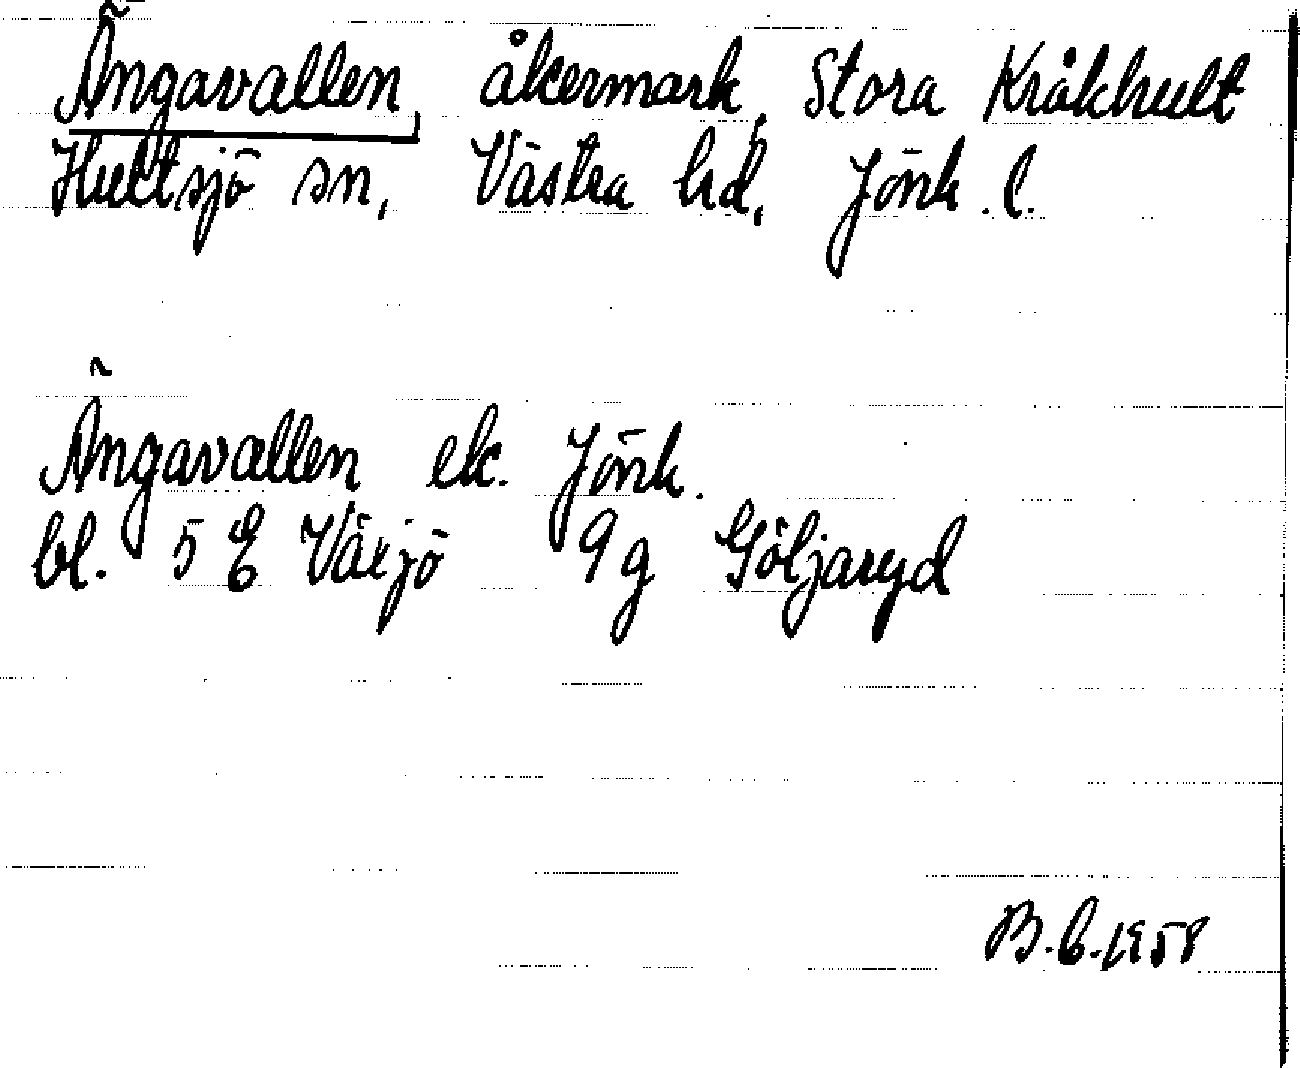 Ängavallen, åkermark, Stora Kråkhult
Hultsjö sn, Västra hd, Jönk. l.
Ängavallen ek. Jönk.
bl. 5 E Växjö 9 g Göljaryd
B.C. 1958